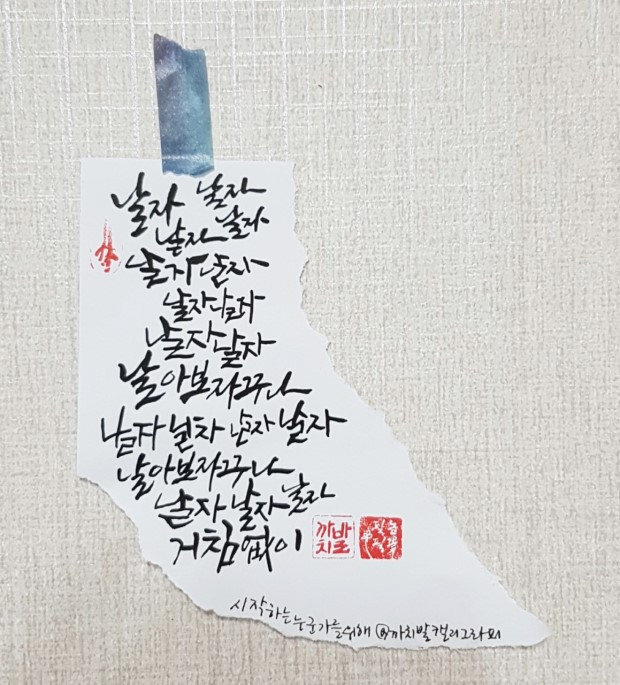 날자 날자
날자 날자
날자 날자
날자 날자
날자 날자
날아보자꾸나
날자 날자 날자 날자
날아보자꾸나
날자 날자 날자
거침없이
까치발
시작하는 누군가를 위해 @까치발캘리그라피